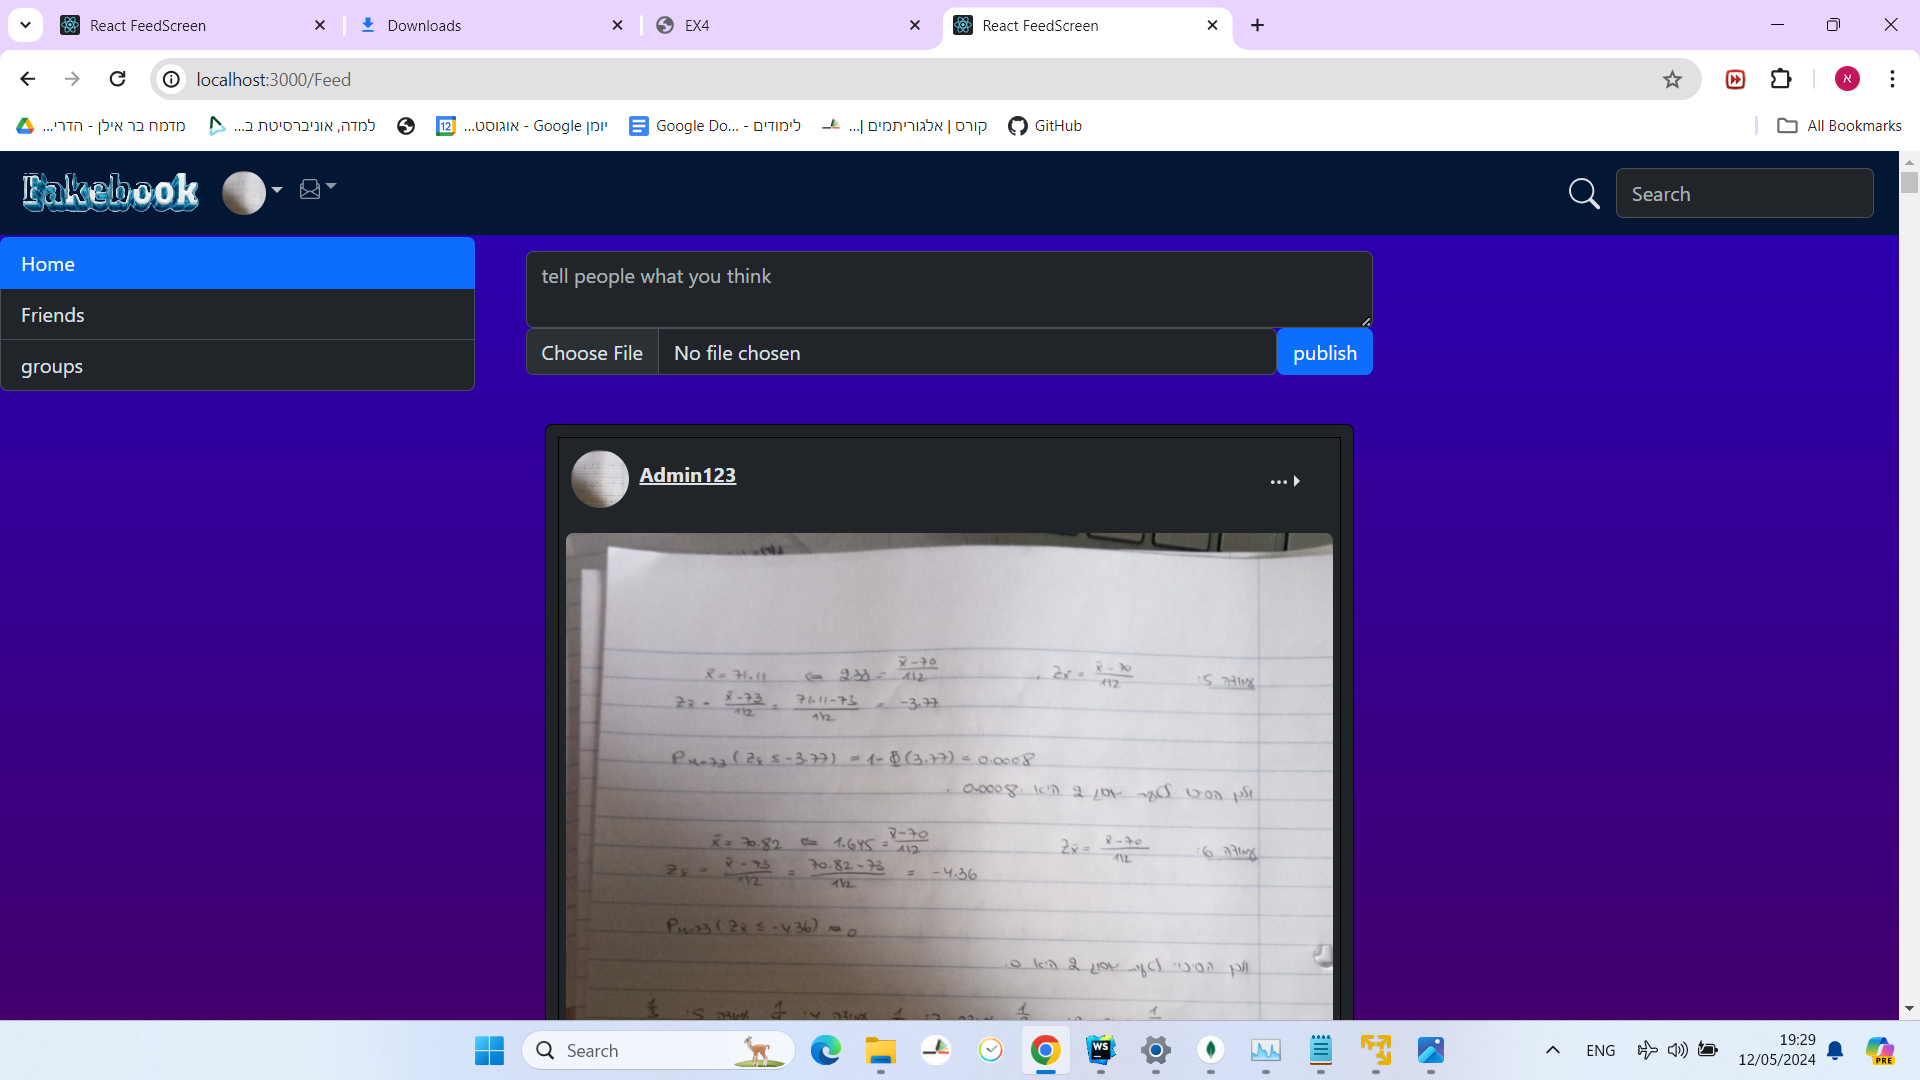 React FeedScreen
Downloads
EX4
React FeedScreen
localhost:3000/Feed
מדמח בר אילן - הדרי...
למדה, אוניברסיטת ב...
יומן Google - אוגוסט...
לימודים - Google Do...
קורס | אלגוריתמים |...
GitHub
All Bookmarks
Fakebook
Search
Home
Friends
groups
tell people what you think
Choose File
No file chosen
publish
Admin123
...
x̄ = 71.11 ⇐ 2.33 = x̄-70 / 1/2 , Zx̄ = x̄-70 / 1/2 :5
Zx̄ = x̄-73 / 1/2 = 71.11-73 / 1/2 = -3.77
Pμ=73 (Zx̄ ≤ -3.77) = 1-Φ(3.77) = 0.0008
2 היא 0.0008.
x̄ = 70.82 ⇐ 1.645 = x̄-70 / 1/2 Zx̄ = x̄-70 / 1/2 :6
Zx̄ = x̄-73 / 1/2 = 70.82-73 / 1/2 = -4.36
Pμ=73 (Zx̄ ≤ -4.36) ≈ 0
2 היא 0.
Search
WS
PRE
ENG
19:29
12/05/2024